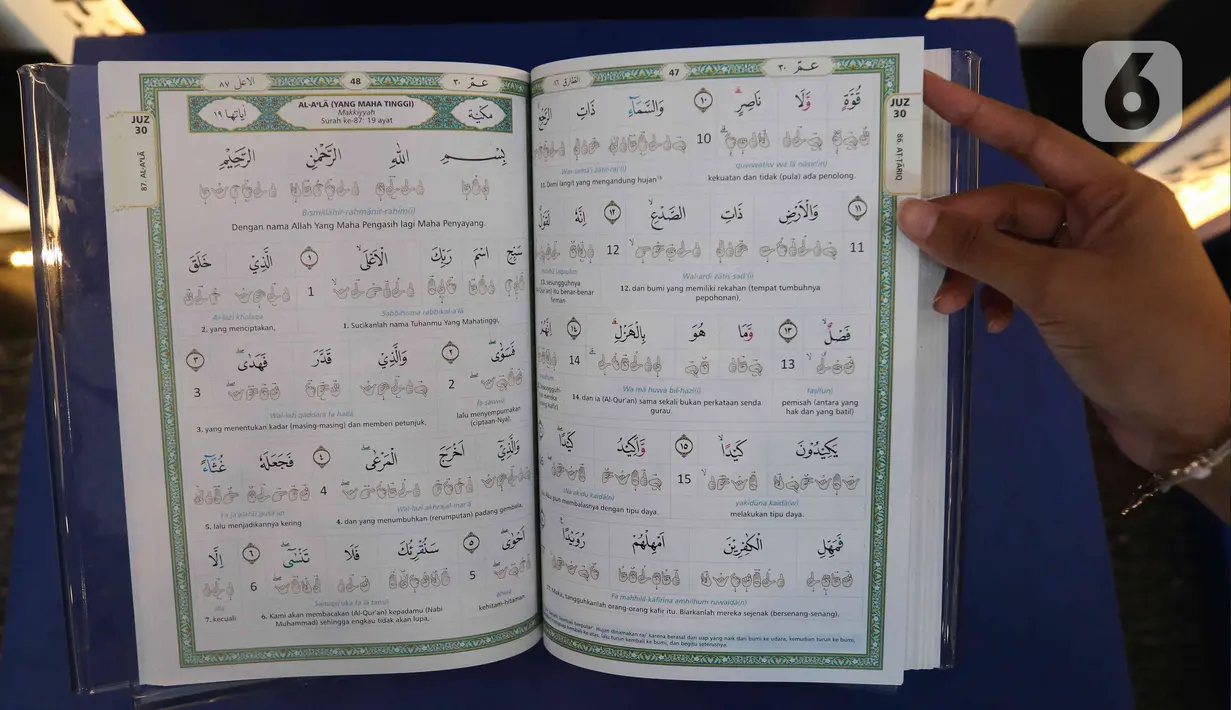 6
عمّ ٣٠
47
الطارق ٨٦
JUZ
30
86. AṬ-ṬĀRIQ
قُوَّةٍ وَّلَا نَاصِرٍۗ ١٠ وَالسَّمَاۤءِ ذَاتِ
10
quwwatiw wa lā nāṣir(in)
kekuatan dan tidak (pula) ada penolong.
Was-samā'i żātir-raj'(i)
11. Demi langit yang mengandung hujan
١١ وَالْاَرْضِ ذَاتِ الصَّدْعِۙ ١٢ اِنَّهٗ لَقَوْلٌ
11
12
Wal-arḍi żātiṣ ṣad'(i)
12. dan bumi yang memiliki rekahan (tempat tumbuhnya
pepohonan),
13. sesungguhnya
itu benar-benar
firman
فَصْلٌۙ ١٣ وَّمَا هُوَ بِالْهَزْلِۗ ١٤ اِنَّهُمْ
13
14
faṣl(un)
pemisah (antara yang
hak dan yang batil)
Wa mā huwa bil-hazl(i)
14. dan ia (Al-Qur'an) sama sekali bukan perkataan senda
gurau.
يَكِيْدُوْنَ كَيْدًاۙ ١٥ وَّاَكِيْدُ كَيْدًاۖ
15
yakīdūna kaidā(w)
melakukan tipu daya.
Wa akīdu kaidā(n)
Aku pun membalasnya dengan tipu daya.
فَمَهِّلِ الْكٰفِرِيْنَ اَمْهِلْهُمْ رُوَيْدًا
Fa mahhilil-kāfirīna amhilhum ruwaidā(n)
17. Maka, tangguhkanlah orang-orang kafir itu. Biarkanlah mereka sejenak (bersenang-senang).
عمّ ٣٠
48
الاعلى ٨٧
JUZ
30
87. AL-A'LĀ
مكيّة
AL-A'LĀ (YANG MAHA TINGGI)
Makkiyyah
Surah ke-87: 19 ayat
اٰياتها ١٩
بِسْمِ اللّٰهِ الرَّحْمٰنِ الرَّحِيْمِ
Bismillāhir-raḥmānir-raḥīm(i)
Dengan nama Allah Yang Maha Pengasih lagi Maha Penyayang.
سَبِّحِ اسْمَ رَبِّكَ الْاَعْلَىۙ ١ الَّذِيْ خَلَقَ
1
Sabbiḥisma rabbikal-a'lā
1. Sucikanlah nama Tuhanmu Yang Mahatinggi,
Al-lażī khalaqa
2. yang menciptakan,
فَسَوّٰىۖ ٢ وَالَّذِيْ قَدَّرَ فَهَدٰىۖ ٣
2
3
fa sawwā
lalu menyempurnakan
(ciptaan-Nya).
Wal-lażī qaddara fa hadā
3. yang menentukan kadar (masing-masing) dan memberi petunjuk,
وَالَّذِيْٓ اَخْرَجَ الْمَرْعٰىۖ ٤ فَجَعَلَهٗ غُثَاۤءً
4
Wal-lażī akhrajal-mar'ā
4. dan yang menumbuhkan (rerumputan) padang gembala,
Fa ja'alahū guṡā'an
5. lalu menjadikannya kering
اَحْوٰىۖ ٥ سَنُقْرِئُكَ فَلَا تَنْسٰىٓۖ ٦ اِلَّا
5
6
aḥwā
kehitam-hitaman
Sanuqri'uka fa lā tansā
6. Kami akan membacakan (Al-Qur'an) kepadamu (Nabi
Muhammad) sehingga engkau tidak akan lupa,
illā
7. kecuali